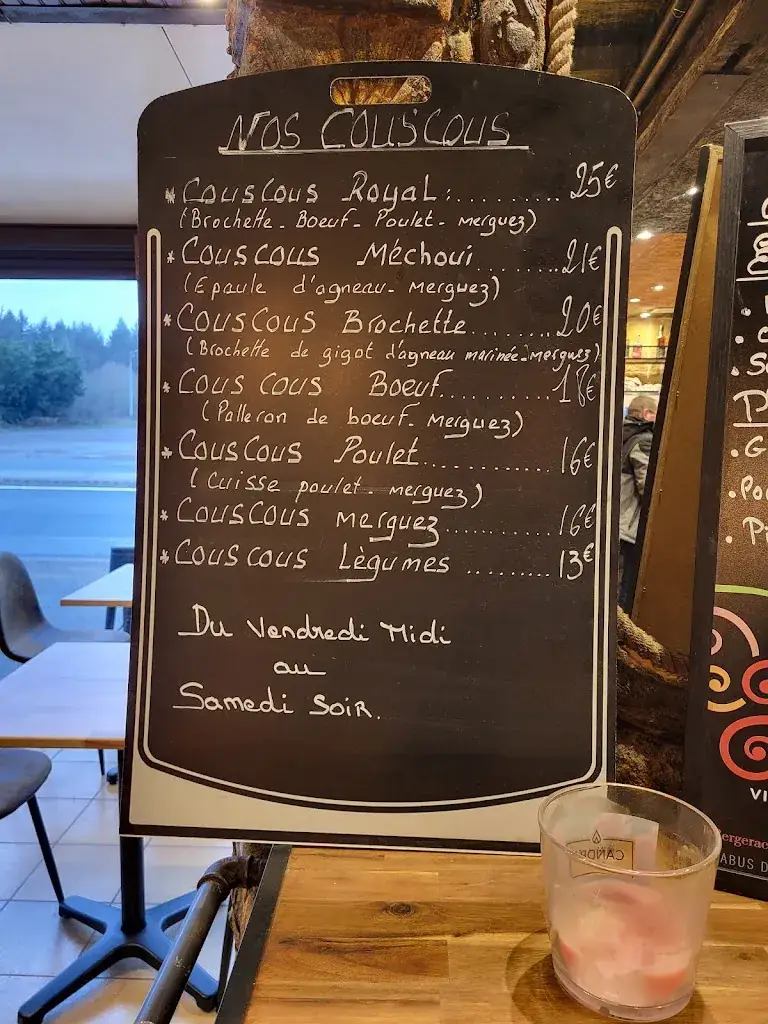 NOS COUSCOUS
* COUSCOUS Royal: .......... 25€
(Brochette - Boeuf - Poulet - merguez)
* COUSCOUS Méchoui ........ 21€
(Epaule d'agneau - Merguez)
* COUSCOUS Brochette ........ 20€
(Brochette de gigot d'agneau marinée - merguez)
* COUSCOUS Boeuf ........... 18€
(Palleron de boeuf - Merguez)
* COUSCOUS Poulet ............ 16€
(Cuisse poulet - merguez)
* COUSCOUS merguez .......... 16€
* COUSCOUS Lègumes ......... 13€
Du Vendredi Midi
au
Samedi SOIR.